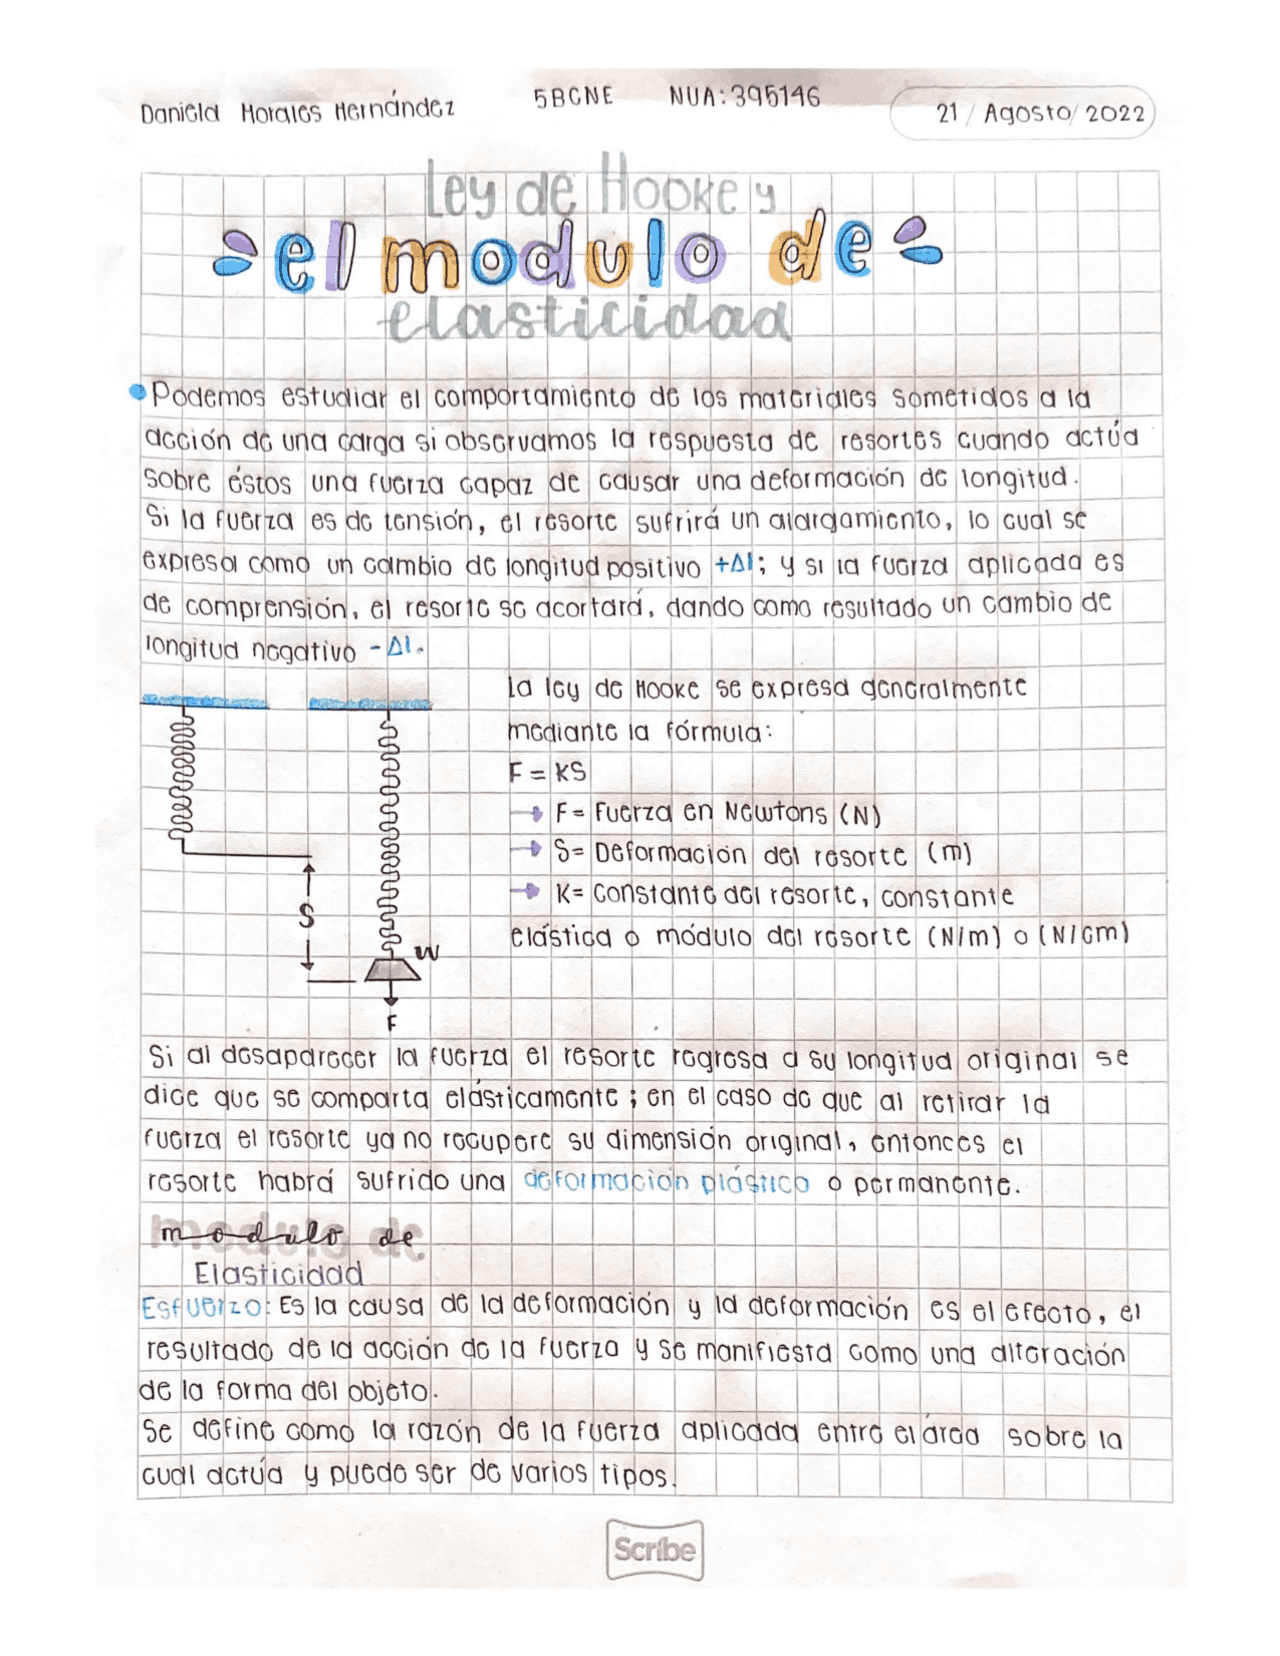 Daniela Morales Hernández 5BCNE NUA:395146 21/Agosto/2022
Ley de Hooke y
el modulo de
elasticidad
• Podemos estudiar el comportamiento de los materiales sometidos a la
acción de una carga si observamos la respuesta de resortes cuando actúa
sobre éstos una fuerza capaz de causar una deformación de longitud.
Si la fuerza es de tensión, el resorte sufrirá un alargamiento, lo cual se
expresa como un cambio de longitud positivo +Δl; y si la fuerza aplicada es
de comprensión, el resorte se acortará, dando como resultado un cambio de
longitud negativo -Δl.
La ley de Hooke se expresa generalmente
mediante la fórmula:
F = KS
→ F= Fuerza en Newtons (N)
→ S= Deformación del resorte (m)
→ K= Constante del resorte, constante
elástica o módulo del resorte (N/m) o (N/cm)
S
W
F
Si al desaparecer la fuerza el resorte regresa a su longitud original se
dice que se comparta elásticamente; en el caso de que al retirar la
fuerza el resorte ya no recupere su dimensión original, entonces el
resorte habrá sufrido una deformación plástico o permanente.
modulo de
Elasticidad
Esfuerzo: Es la causa de la deformación y la deformación es el efecto, el
resultado de la acción de la fuerza y se manifiesta como una alteración
de la forma del objeto.
Se define como la razón de la fuerza aplicada entre el área sobre la
cual actúa y puede ser de varios tipos.
Scribe